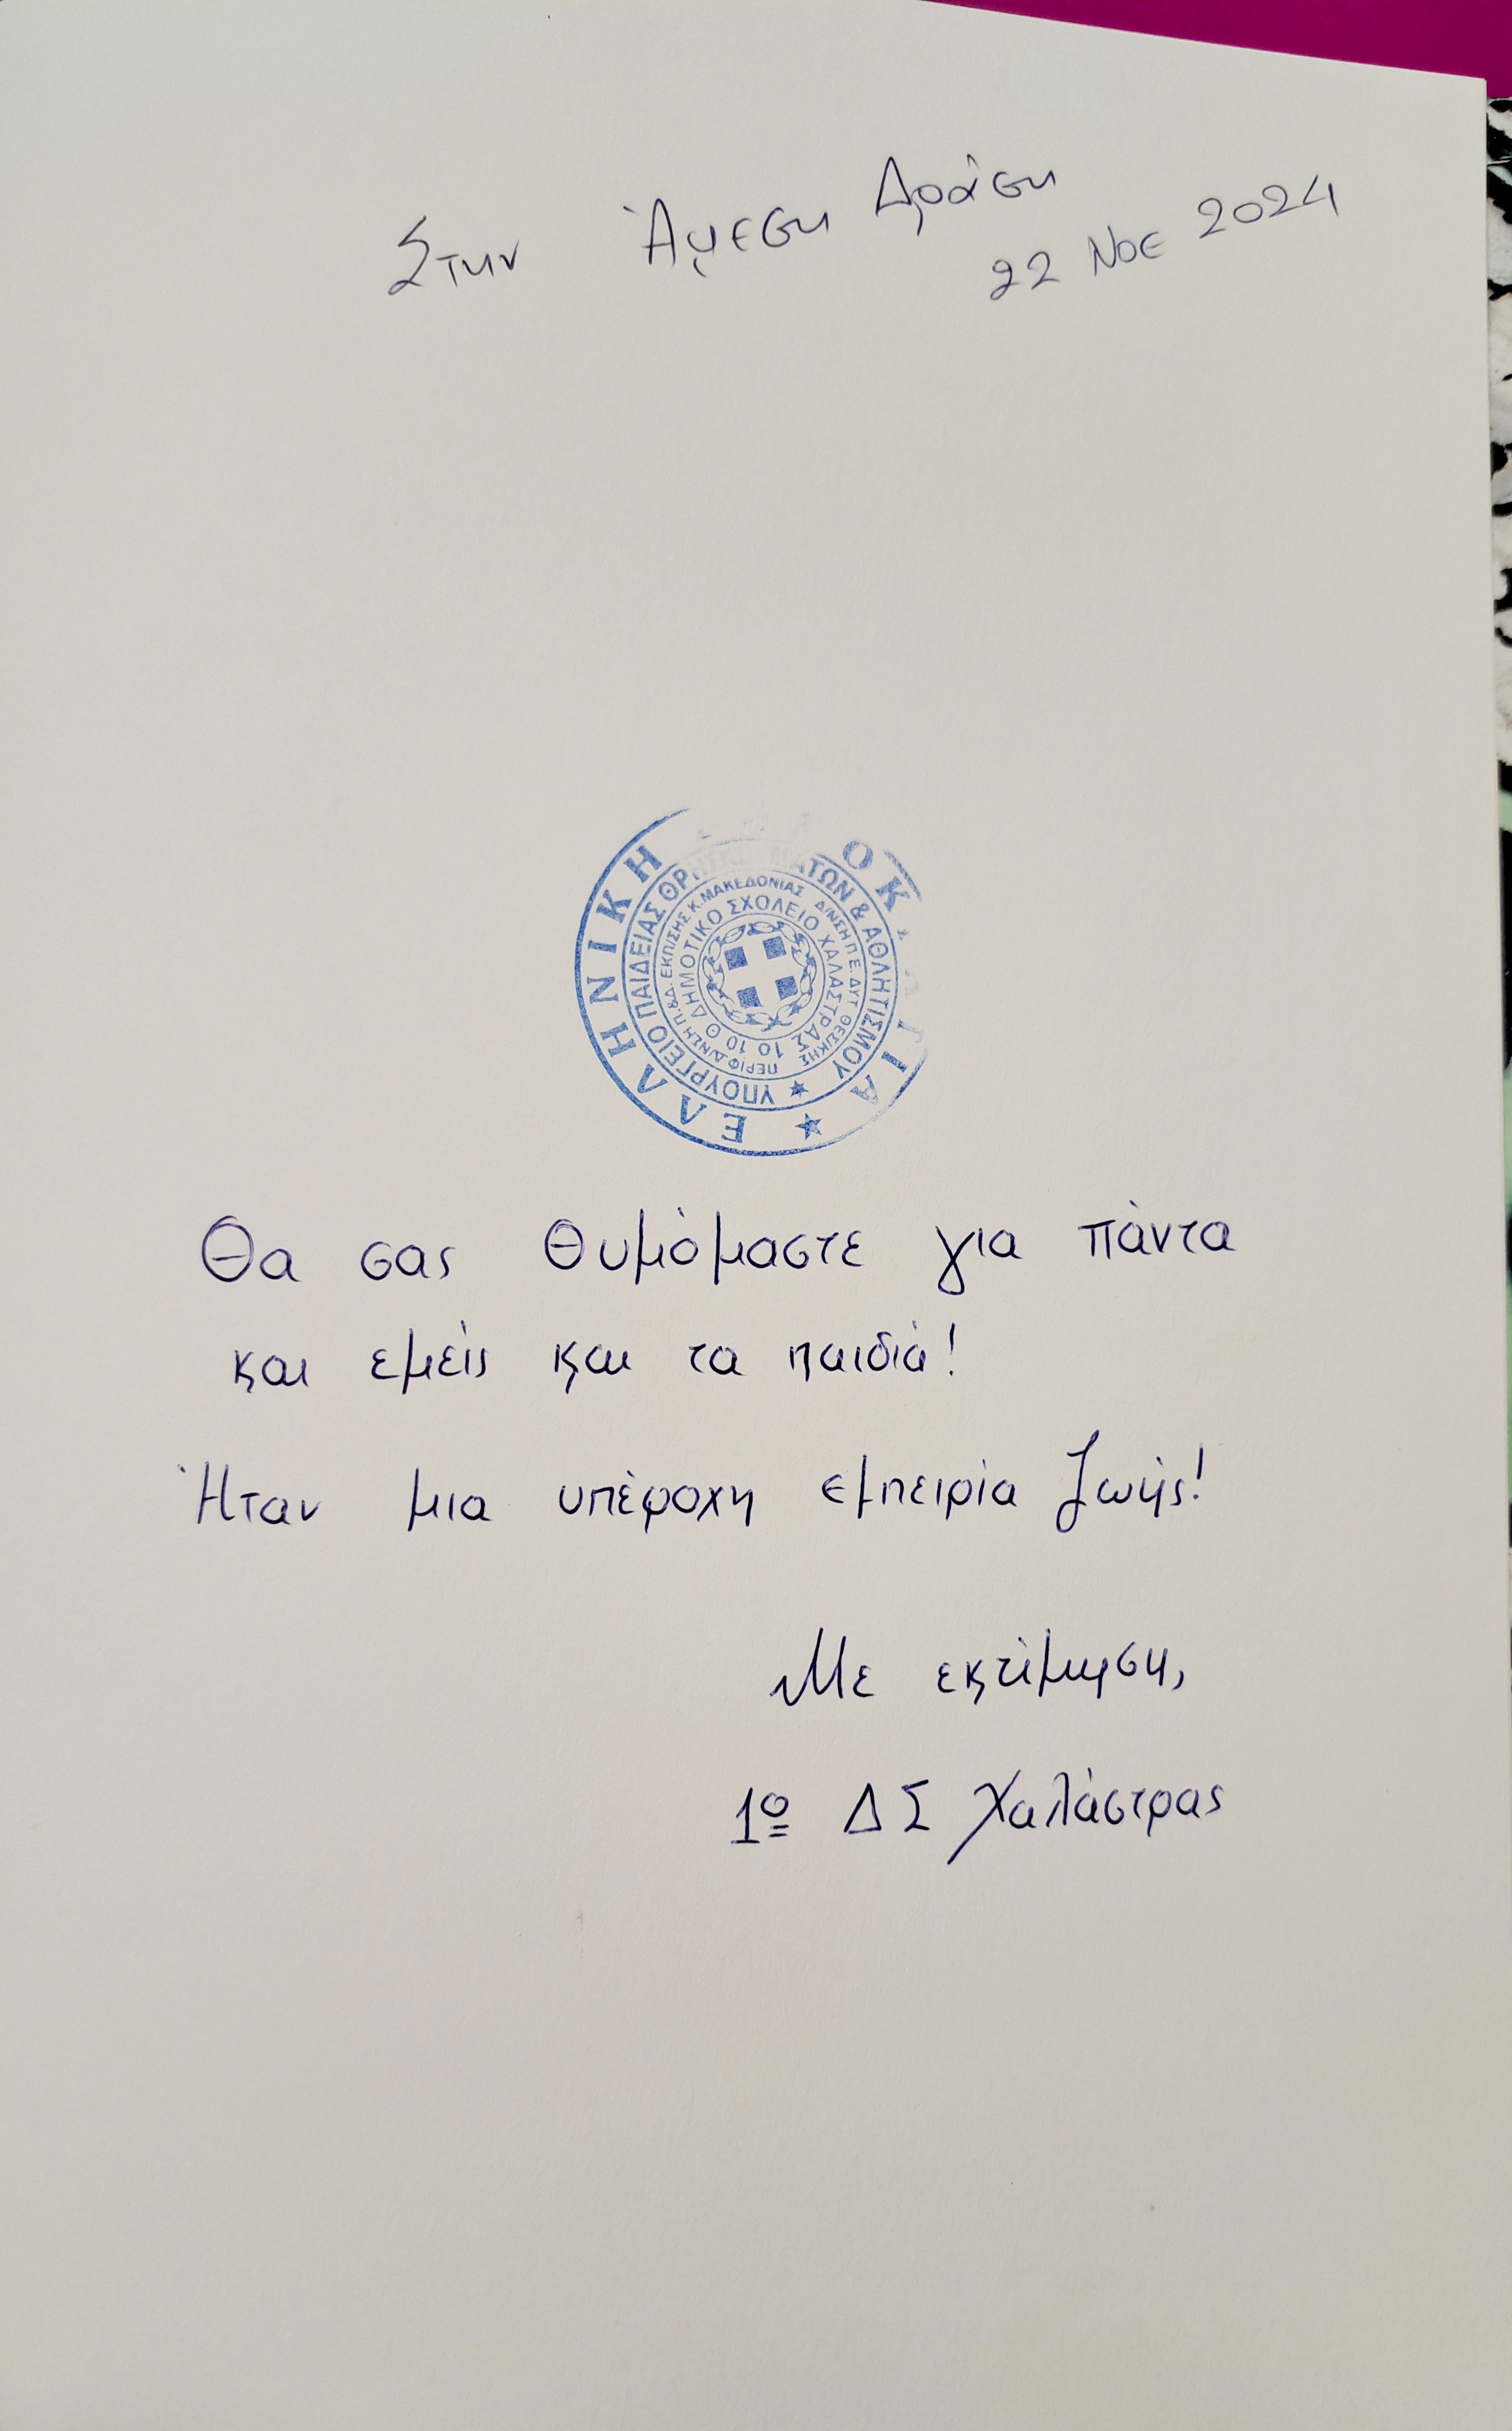 Στην Άμεση Δράση
22 Νοε 2024
ΕΛΛΗΝΙΚΗ
ΥΠΟΥΡΓΕΙΟ ΠΑΙΔΕΙΑΣ ΘΡΗΣΚΕΥΜΑΤΩΝ & ΑΘΛΗΤΙΣΜΟΥ
ΠΕΡΙΦ. Δ/ΝΣΗ Π.&Δ. ΕΚΠ/ΣΗΣ Κ. ΜΑΚΕΔΟΝΙΑΣ Δ/ΝΣΗ Π.Ε. ΔΥΤ. ΘΕΣ/ΚΗΣ
1Ο 10 Θ ΔΗΜΟΤΙΚΟ ΣΧΟΛΕΙΟ ΧΑΛΑΣΤΡΑΣ
Θα σας θυμόμαστε για πάντα
και εμείς και τα παιδιά!
Ήταν μια υπέροχη εμπειρία ζωής!
Με εκτίμηση,
1ο ΔΣ Χαλάστρας